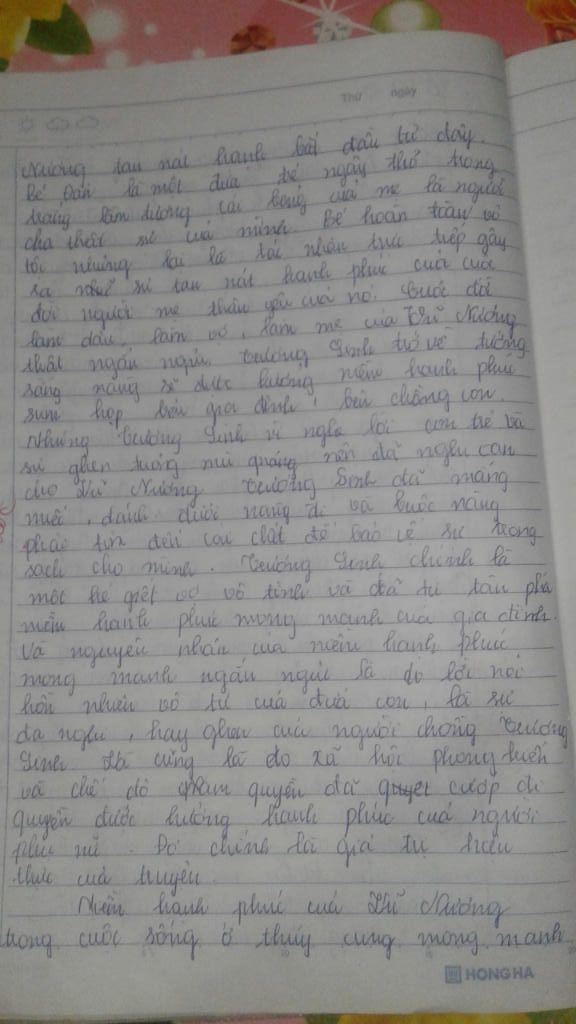 Thứ ngày
Nương tan nát hanh bắt đầu từ đây.
Bé Đản là một đứa trẻ ngây thơ trong
trắng lầm tưởng cái bóng của mẹ là người
cha thật sự của mình. Bé hoàn toàn vô
tội nhưng lại là tác nhân trực tiếp gây
ra sự tan nát hanh phúc cuả cuộc
đời người mẹ thân yêu cuả nó. Cuộc đời
làm dâu, làm vợ, làm mẹ của Vũ Nương
thật ngắn ngủi. Trương Sinh trở về tưởng
rằng nàng sẽ được hưởng niềm hanh phúc
sum họp bên gia đình, bên chồng con.
Nhưng Trương Sinh vì nghe lời con trẻ và
sự ghen tuông mù quáng nên đã nghi oan
cho Vũ Nương. Trương Sinh đã mắng
nhiếc, đánh đuổi nàng đi và buộc nàng
phải tìm đến cái chết để bảo vệ sự trong
sạch cho mình. Trương Sinh chính là
một kẻ giết vợ vô tình và đã tự tay phá
niềm hanh phúc mong manh cuả gia đình.
Và nguyên nhân của niềm hanh phúc
mong manh ngắn ngủi là do lời nói
hồn nhiên vô tư cuả đứa con, là sự
đa nghi, hay ghen cuả người chồng Trương
Sinh và cũng là do xã hội phong kiến
và chế độ nam quyền đã cướp đi
quyền được hưởng hanh phúc cuả người
phụ nữ. Đó chính là giá trị hiện
thực cuả truyện.
Niềm hanh phúc cuả Vũ Nương
trong cuộc sống ở thuỷ cung mong manh
HONG HA